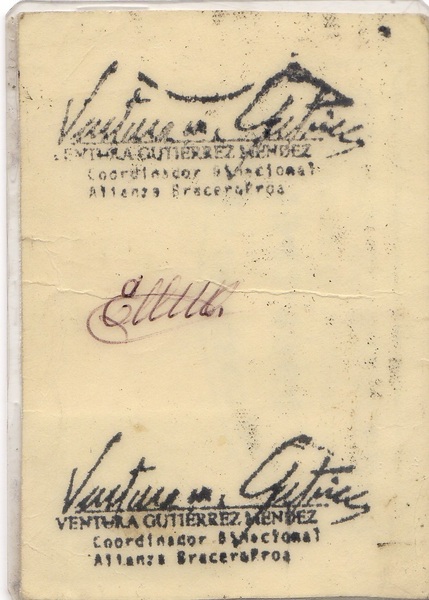 Ventura m. Gutiérrez
VENTURA GUTIÉRREZ MENDEZ
Coordinador BiNacional
Alianza BraceroProa
Ventura m. Gutiérrez
VENTURA GUTIÉRREZ MENDEZ
Coordinador BiNacional
Alianza BraceroProa